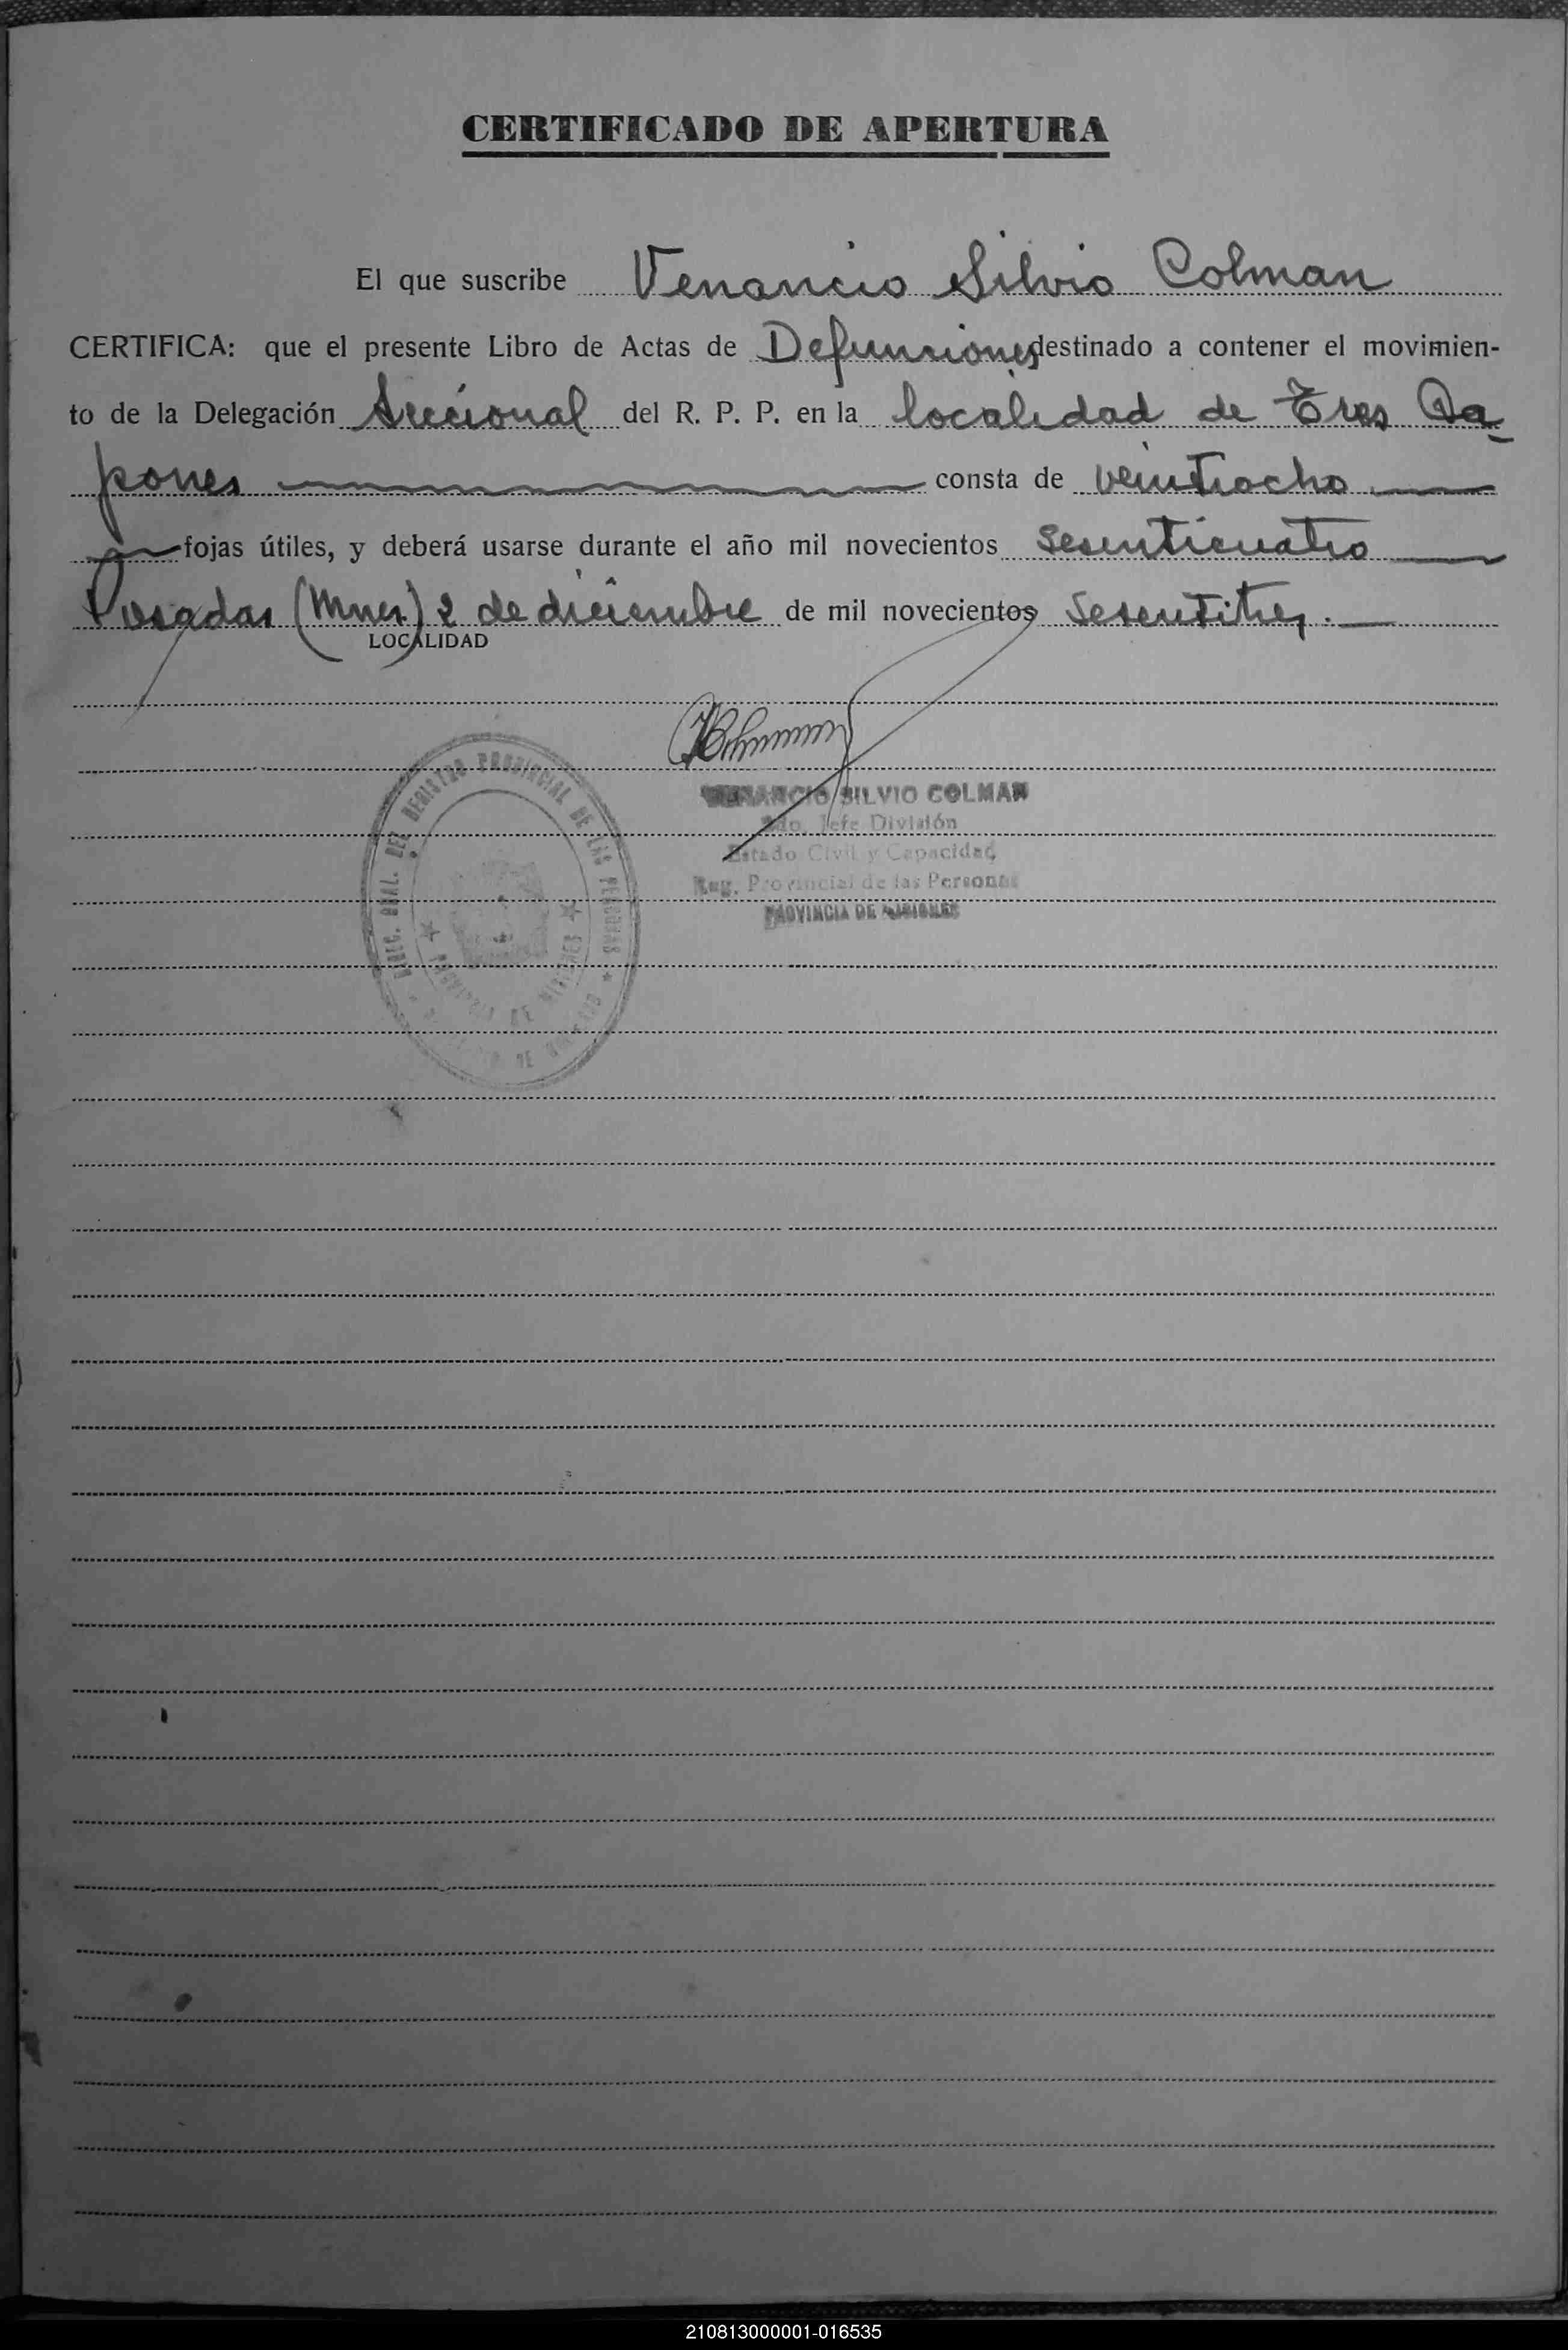 CERTIFICADO DE APERTURA
El que suscribe Venancio Silvio Colman
CERTIFICA: que el presente Libro de Actas de Defunciones destinado a contener el movimien-
to de la Delegación Seccional del R. P. P. en la localidad de Tres Ca-
pones consta de veintiocho
fojas útiles, y deberá usarse durante el año mil novecientos sesenticuatro
Posadas (Mnes) 2 de diciembre de mil novecientos sesentitres.
LOCALIDAD
VENANCIO SILVIO COLMAN
2do. Jefe División
Estado Civil y Capacidad
Reg. Provincial de las Personas
PROVINCIA DE MISIONES
DIREC. GRAL. DEL REGISTRO PROVINCIAL DE LAS PERSONAS
PROVINCIA DE MISIONES
210813000001-016535